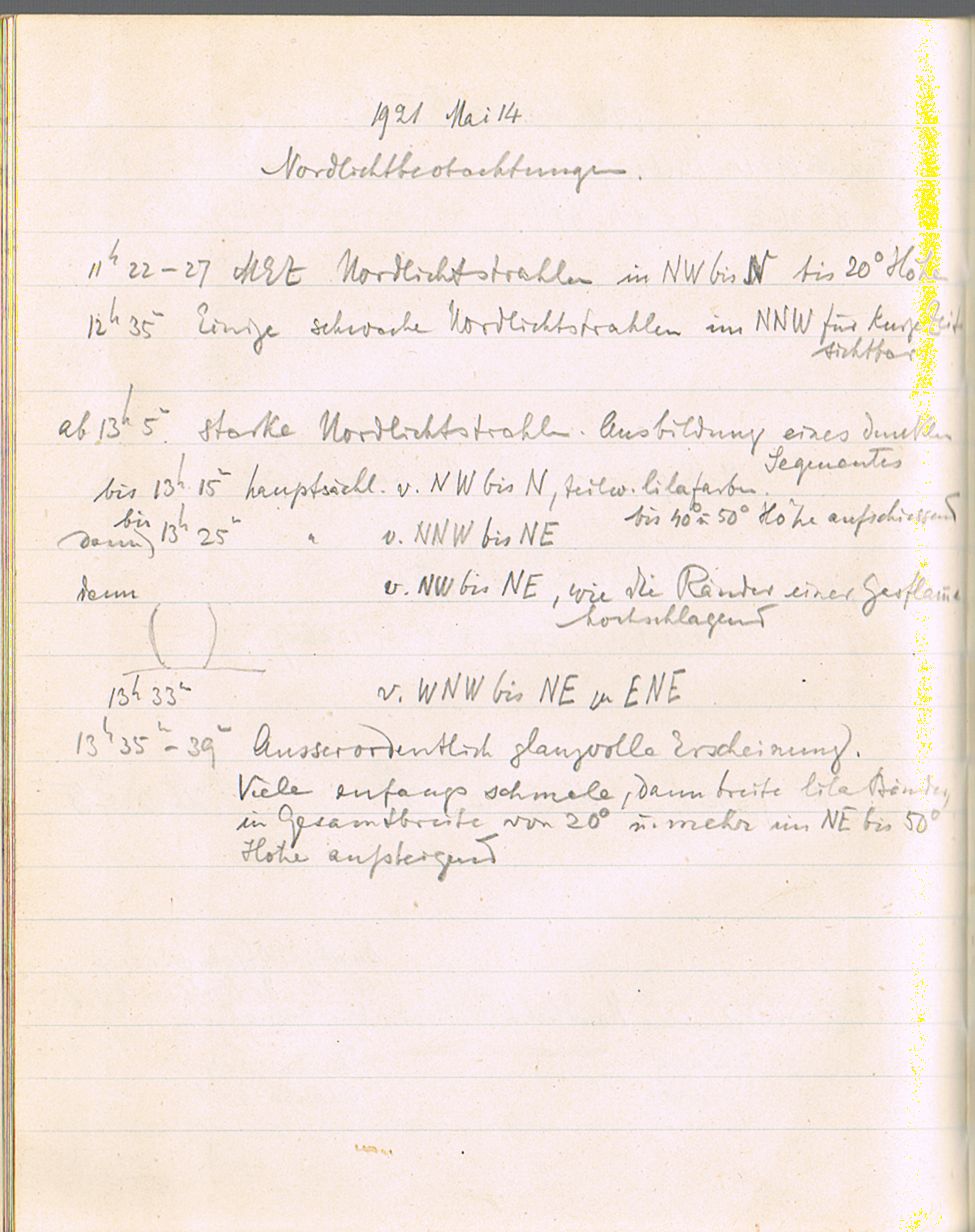 1921 Mai 14
Nordlichtbeobachtungen.
11h 22 – 27 MEZ Nordlichtstrahlen in NW bis N bis 20° Höhe
12h 35 Einige schwache Nordlichtstrahlen im NNW für kurze Zeit
sichtbar
ab 13h 5m starke Nordlichtstrahlen. Ausbildung eines dunklen
Segmentes
bis 13h 15m hauptsächl. v. NW bis N, teilw. lilafarben.
bis 40° u 50° Höhe aufschiessend
dann bis 13h 25m " v. NNW bis NE
dann v. NW bis NE, wie die Ränder einer Gasflamme
hochschlagend
13h 33m v. WNW bis NE u ENE
13h 35m – 39m Ausserordentlich glanzvolle Erscheinung.
Viele anfangs schmale, dann breite lila Bänder,
in Gesamtbreite von 20° u. mehr im NE bis 50°
Höhe aufsteigend